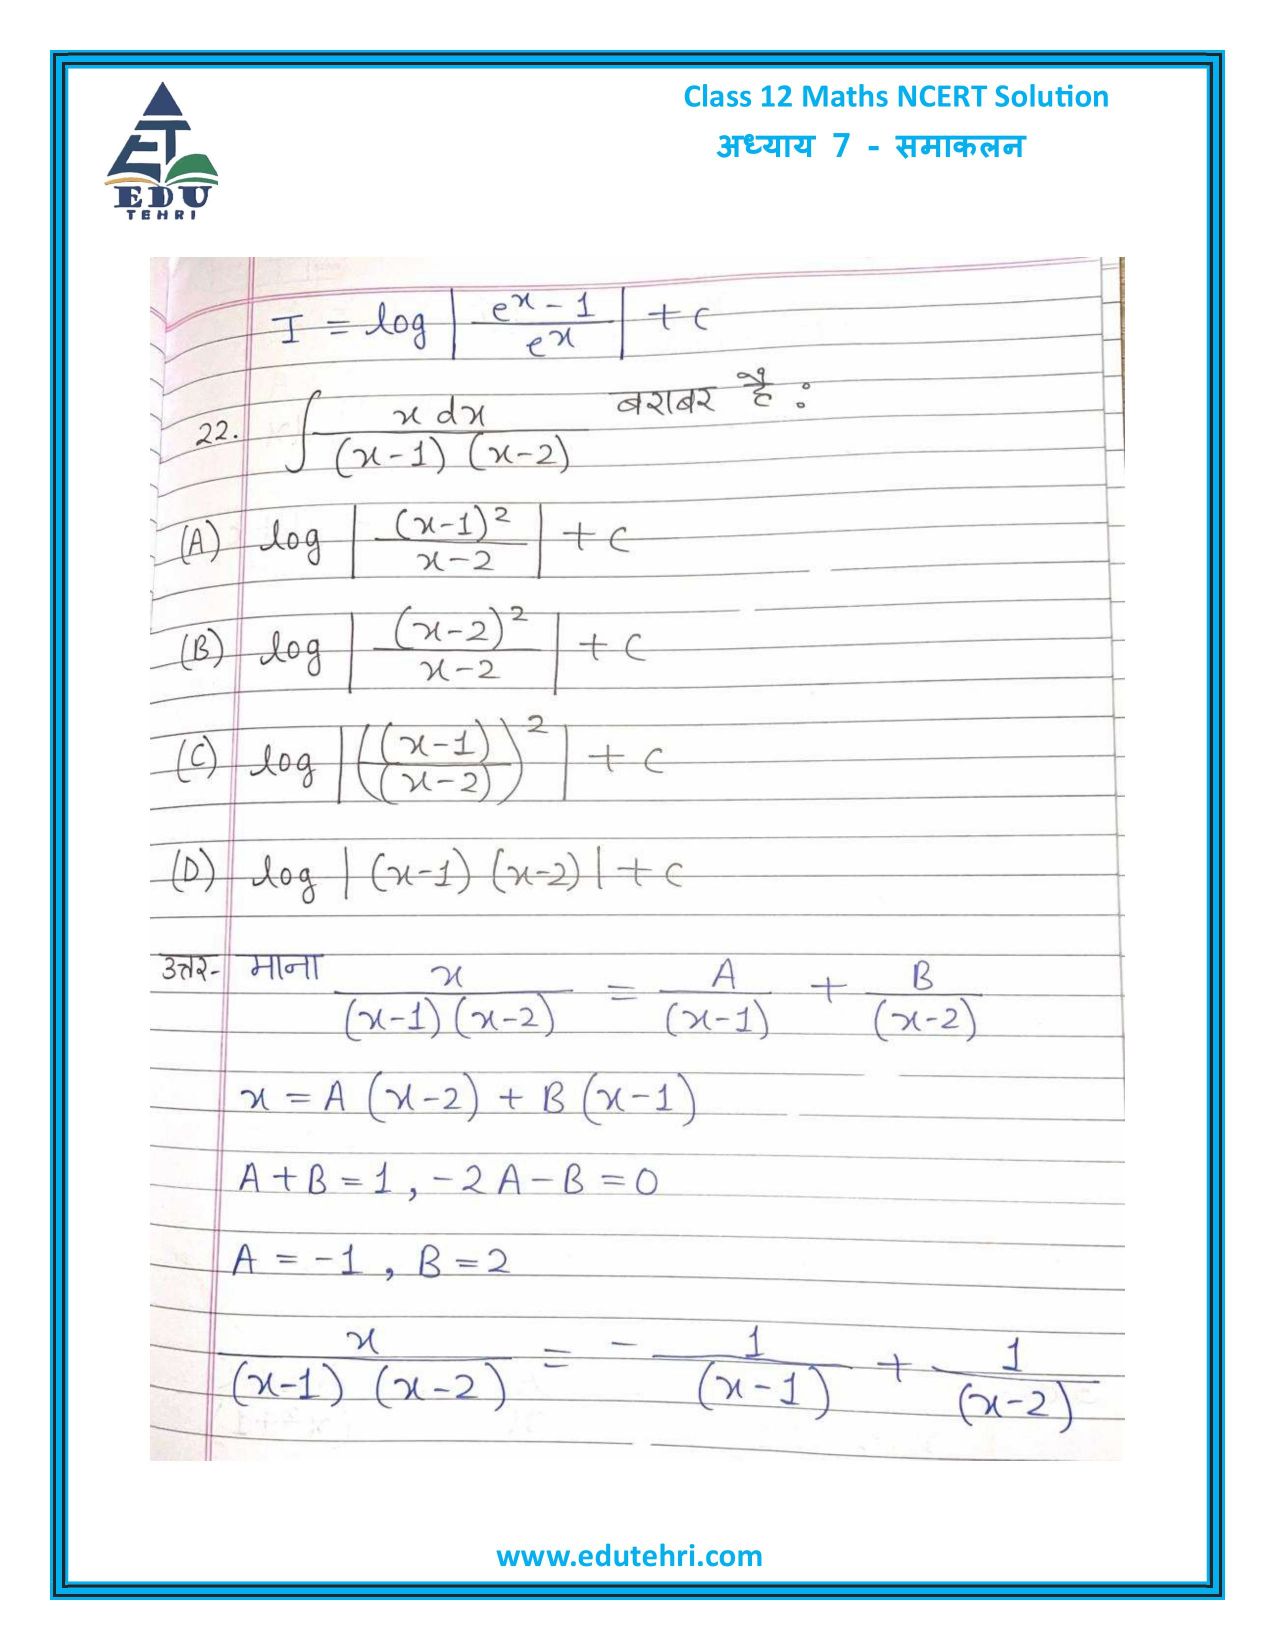 Class 12 Maths NCERT Solution
अध्याय 7 - समाकलन
ET
EDU
TEHRI
I = log | (e^x - 1) / e^x | + c
22. ∫ x dx / (x-1) (x-2) बराबर है :
(A) log | (x-1)² / x-2 | + c
(B) log | (x-2)² / x-2 | + c
(C) log | ((x-1) / (x-2))² | + c
(D) log | (x-1) (x-2) | + c
उत्तर- माना x / (x-1) (x-2) = A / (x-1) + B / (x-2)
x = A (x-2) + B (x-1)
A + B = 1 , -2A - B = 0
A = -1 , B = 2
x / (x-1) (x-2) = - 1 / (x-1) + 1 / (x-2)
www.edutehri.com